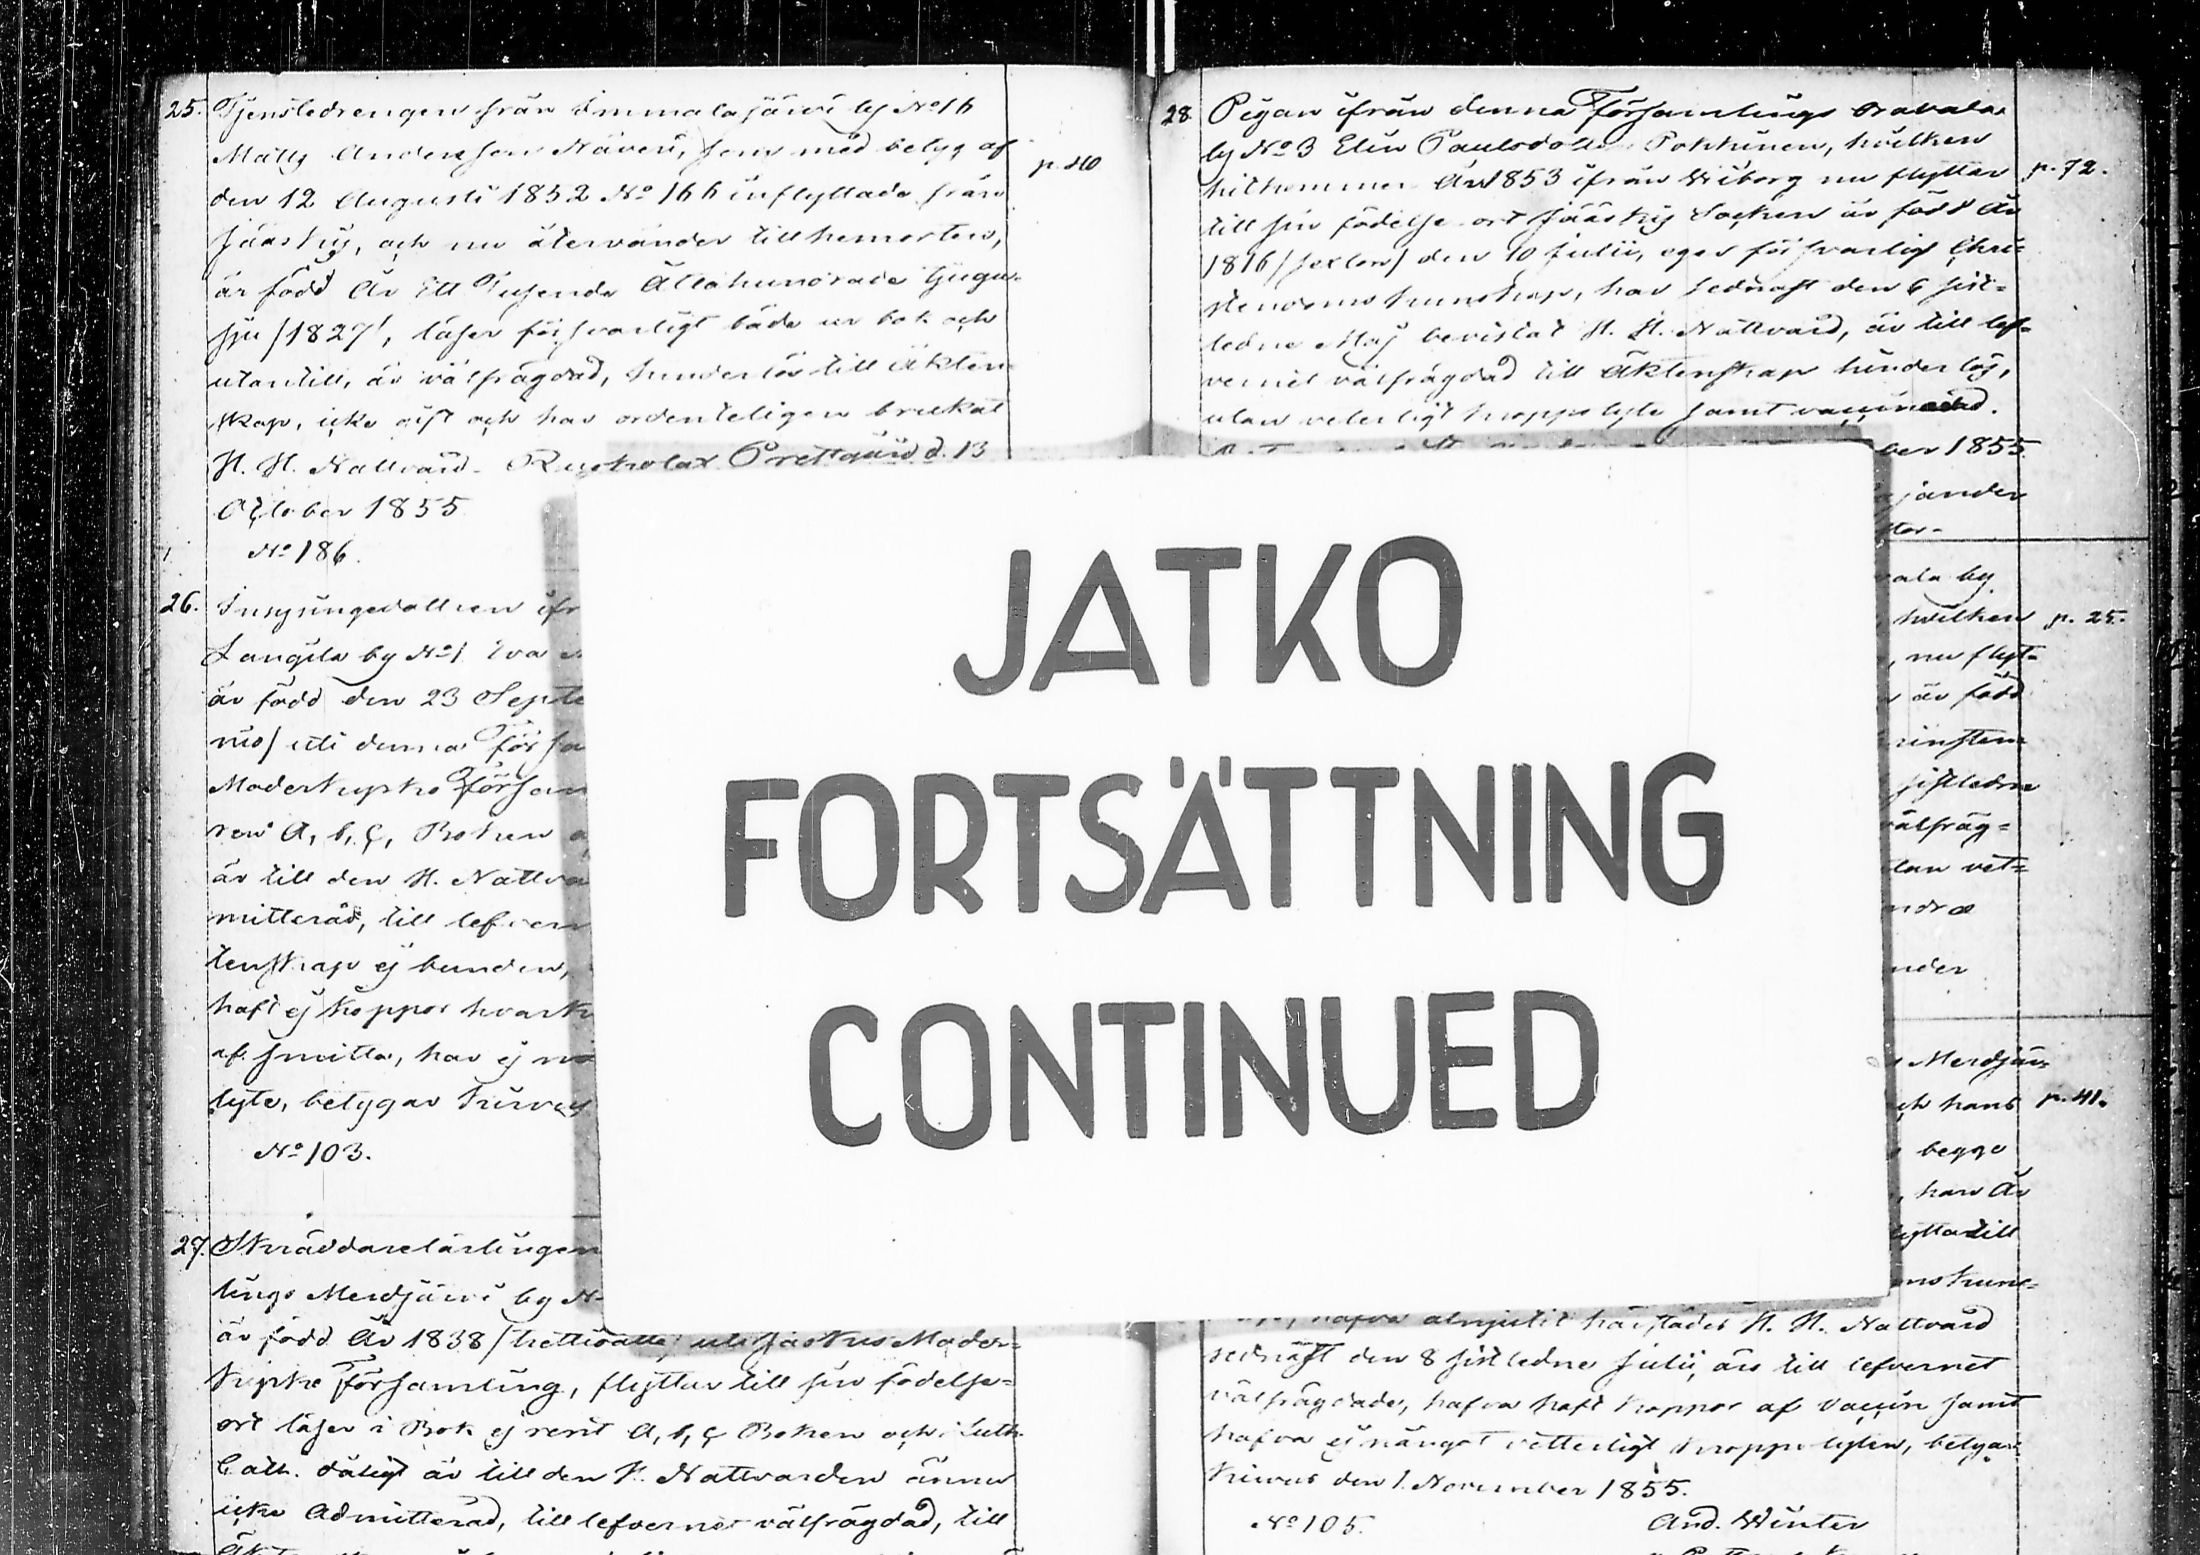 25. Tjenstedrengen från Immalajärvi by No 16
Matts Andersson Näveri, som med betyg af
den 12 Augusti 1852 No 166 inflyttade från
p. 40
Jääskis, och nu återvänder till hemorten,
är född År Ett Tusende Åttahundrade tjugu-
sju /1827/, läser försvarligt både ur bok och
utantill, är välfrägdad, hinderlös till äkten-
skap, icke gift och har ordenteligen brukat
H. H. Nattvard. Ruokolax Prestgård d. 13
October 1855
No 186.
26. Insyningedottren ifr
Langila by No 1 Eva
är född den 23 Septe
nio/ uti denna Förs
Moderkyrko Försam
rent A, b, c, Boken
är till den H. Nattva
mitterad, till lefver
tenskap ej bunden,
haft ej koppor hvark
af smitta, har ej
lyte, betygar Kirvus
No 103.
27. Skräddarelärlingen
lings Merdjärvi by N
är född År 1838 /trettioåtta/ uti Jäskis Moder-
kyrko Församling, flyttar till sin födelse-
ort läser i Bok ej rent A, b, c Boken och Luth.
Cath. dåligt är till den H. Nattvarden ännu
icke Admitterad, till lefvernet välfrägdad, till
28. Pigan ifrån denna Församlings Oravala
by No 3 Elin Paulsdotter Pokkinen, hvilken
hitkommer År 1853 ifrån Wiborg nu flyttar
p. 72.
till sin födelse ort Jääskis Socken är född År
1816 /sexton/ den 10 Julii, eger försvarlig Chri-
stendoms kunskap, har sednast den 6 sist-
ledne Maj bevistat H. H. Nattvard, är till lef-
vernet välfrägdad till Äktenskap hinderlös,
utan veterligt kroppslyte samt vaccinerad.
ber 1855
jander
vala by
hvilken
p. 25.
nu flyt-
är född
sistledne
välfräg-
tan vet-
nder
Merdjär-
och hans
p. 41.
begge
han År
lytta till
hafva alnjutit härstädes H. H. Nattvard
sednast den 8 sistledne Julii, äro till lefvernet
välfrägdade, hafva haft koppor af vaccin samt
hafva ej något vetterligt kroppslyten, betygar
Kirvus den 1 November 1855.
No 105.
And. Winter
JATKO
FORTSÄTTNING
CONTINUED